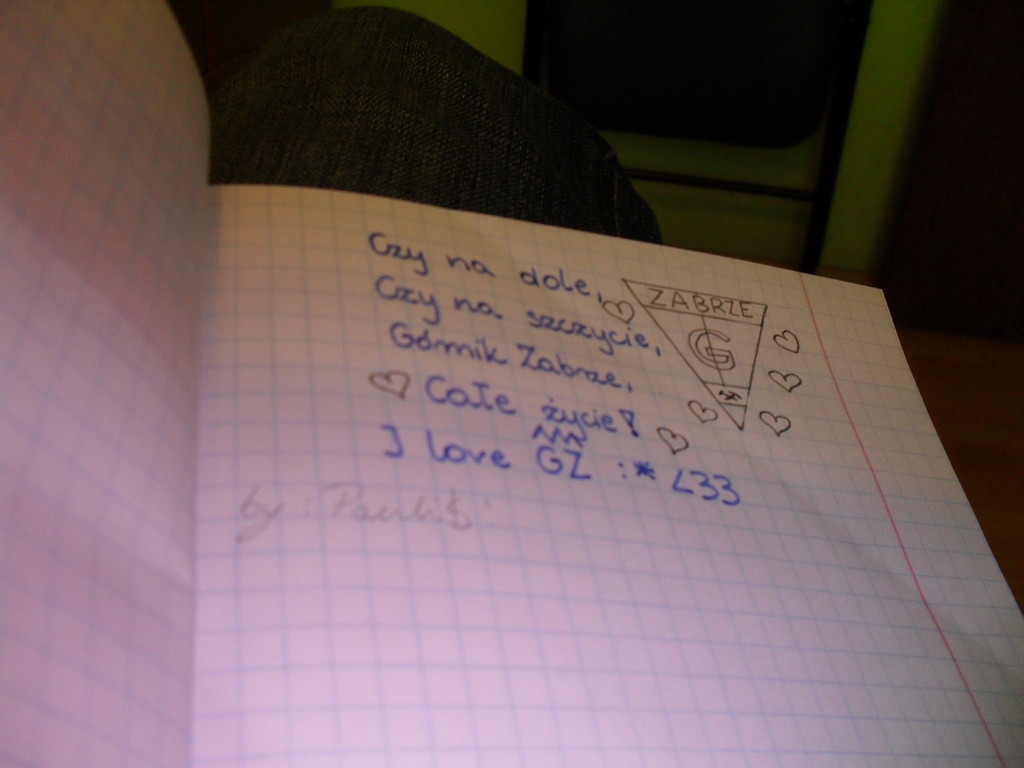 Czy na dole,
Czy na szczycie,
Górnik Zabrze,
Całe życie!
I love GZ :* <33
ZABRZE
G
by: